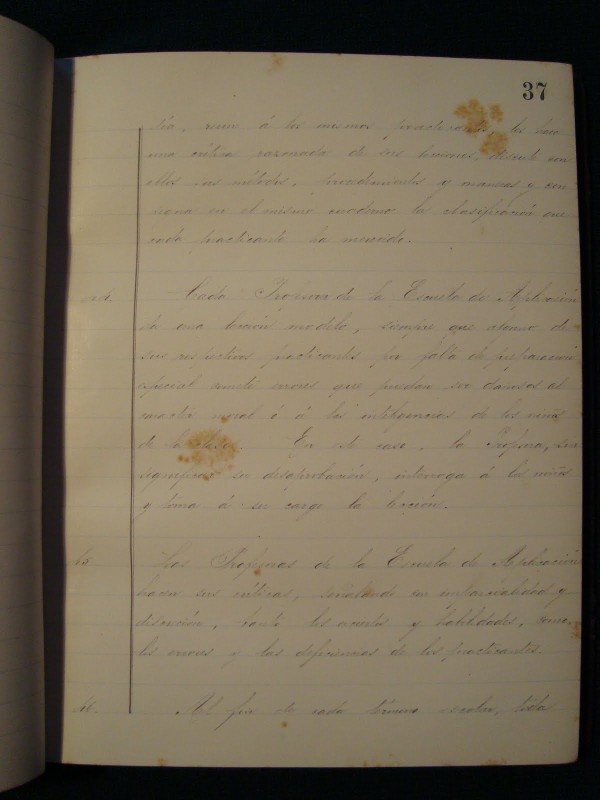 37
dia, reune á los mismos practicantes, les hace
una crítica razonada de sus lecciones, discute con
ellos sus métodos, procedimientos y maneras y con
signa en el mismo cuaderno la clasificación que
cada practicante ha merecido.
Cada Profesora de la Escuela de Aplicación
dá una lección modelo, siempre que alguno de
sus respectivos practicantes por falta de preparación
especial cometé errores que puedan ser dañosos al
carácter moral ó á las inteligencias de los niños
de la clase. En este caso, la Profesora, sin
significar su desaprobación, interroga á los niños
y toma á su cargo la lección.
65 Las Profesoras de la Escuela de Aplicación
hacen sus críticas, señalando con imparcialidad y
discreción, tanto los aciertos y habilidades, como
los errores y las deficiencias de los practicantes.
66. Al fin de cada término escolar, toda